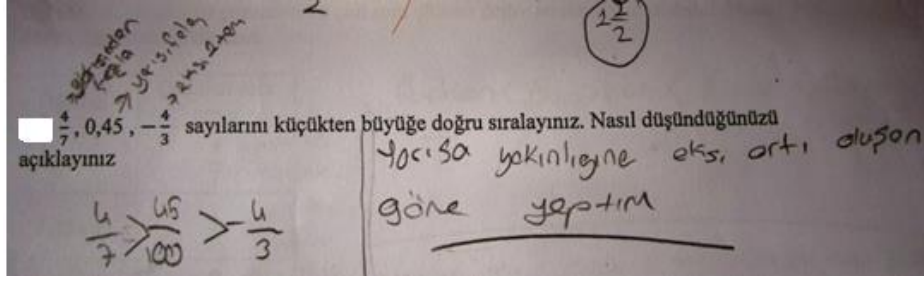 2
1 1/2
yarısından fazla
→ yarısı fela
→ eksi 1 tam
4/7, 0,45, -4/3 sayılarını küçükten büyüğe doğru sıralayınız. Nasıl düşündüğünüzü
açıklayınız
Yarısa yakınlığına eksi artı oluşan
göre yaptım
4/7 > 45/100 > -4/3